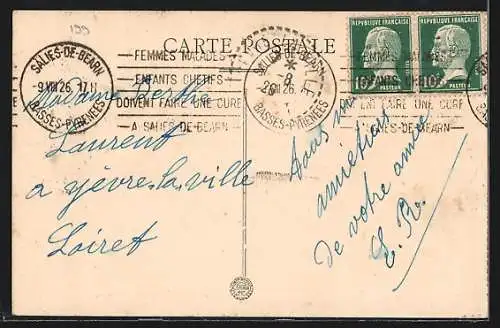 199
CARTE POSTALE
SALIES-DE-BEARN
9 VIII 26
BASSES-PYRENEES
FEMMES MALADES
ENFANTS CHETIFS
DOIVENT FAIRE UNE CURE
A SALIES-DE-BEARN
SALIES
26
BASSES-PYRENEES
REPVBLIQVE FRANÇAISE
10c
PASTEVR
REPVBLIQVE FRANÇAISE
10c
PASTEVR
FEMMES MALADES
ENFANTS CHETIFS
FAIRE UNE CURE
A SALIES-DE-BEARN
Madame Berthe
Laurent
a yèvre-la-ville
Loiret
amitiés
de votre amie